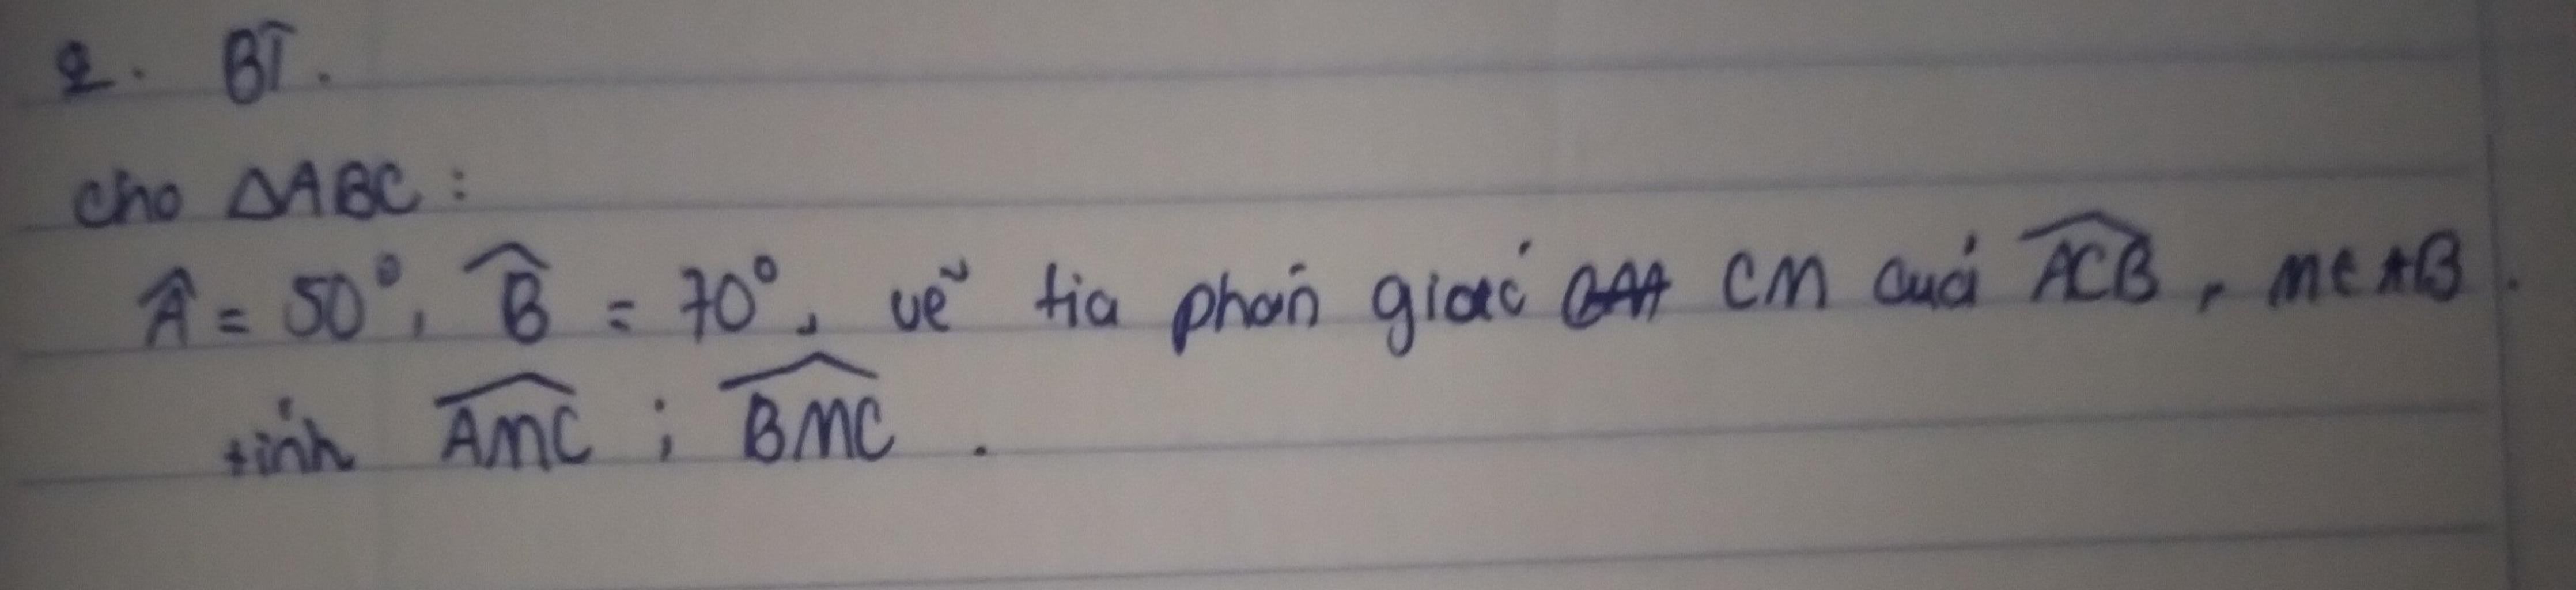 2. BT.
cho ΔABC:
Â = 50°, B̂ = 70°, vẽ tia phân giác CM của ACB̂, M ∈ AB.
tính AMĈ ; BMĈ.